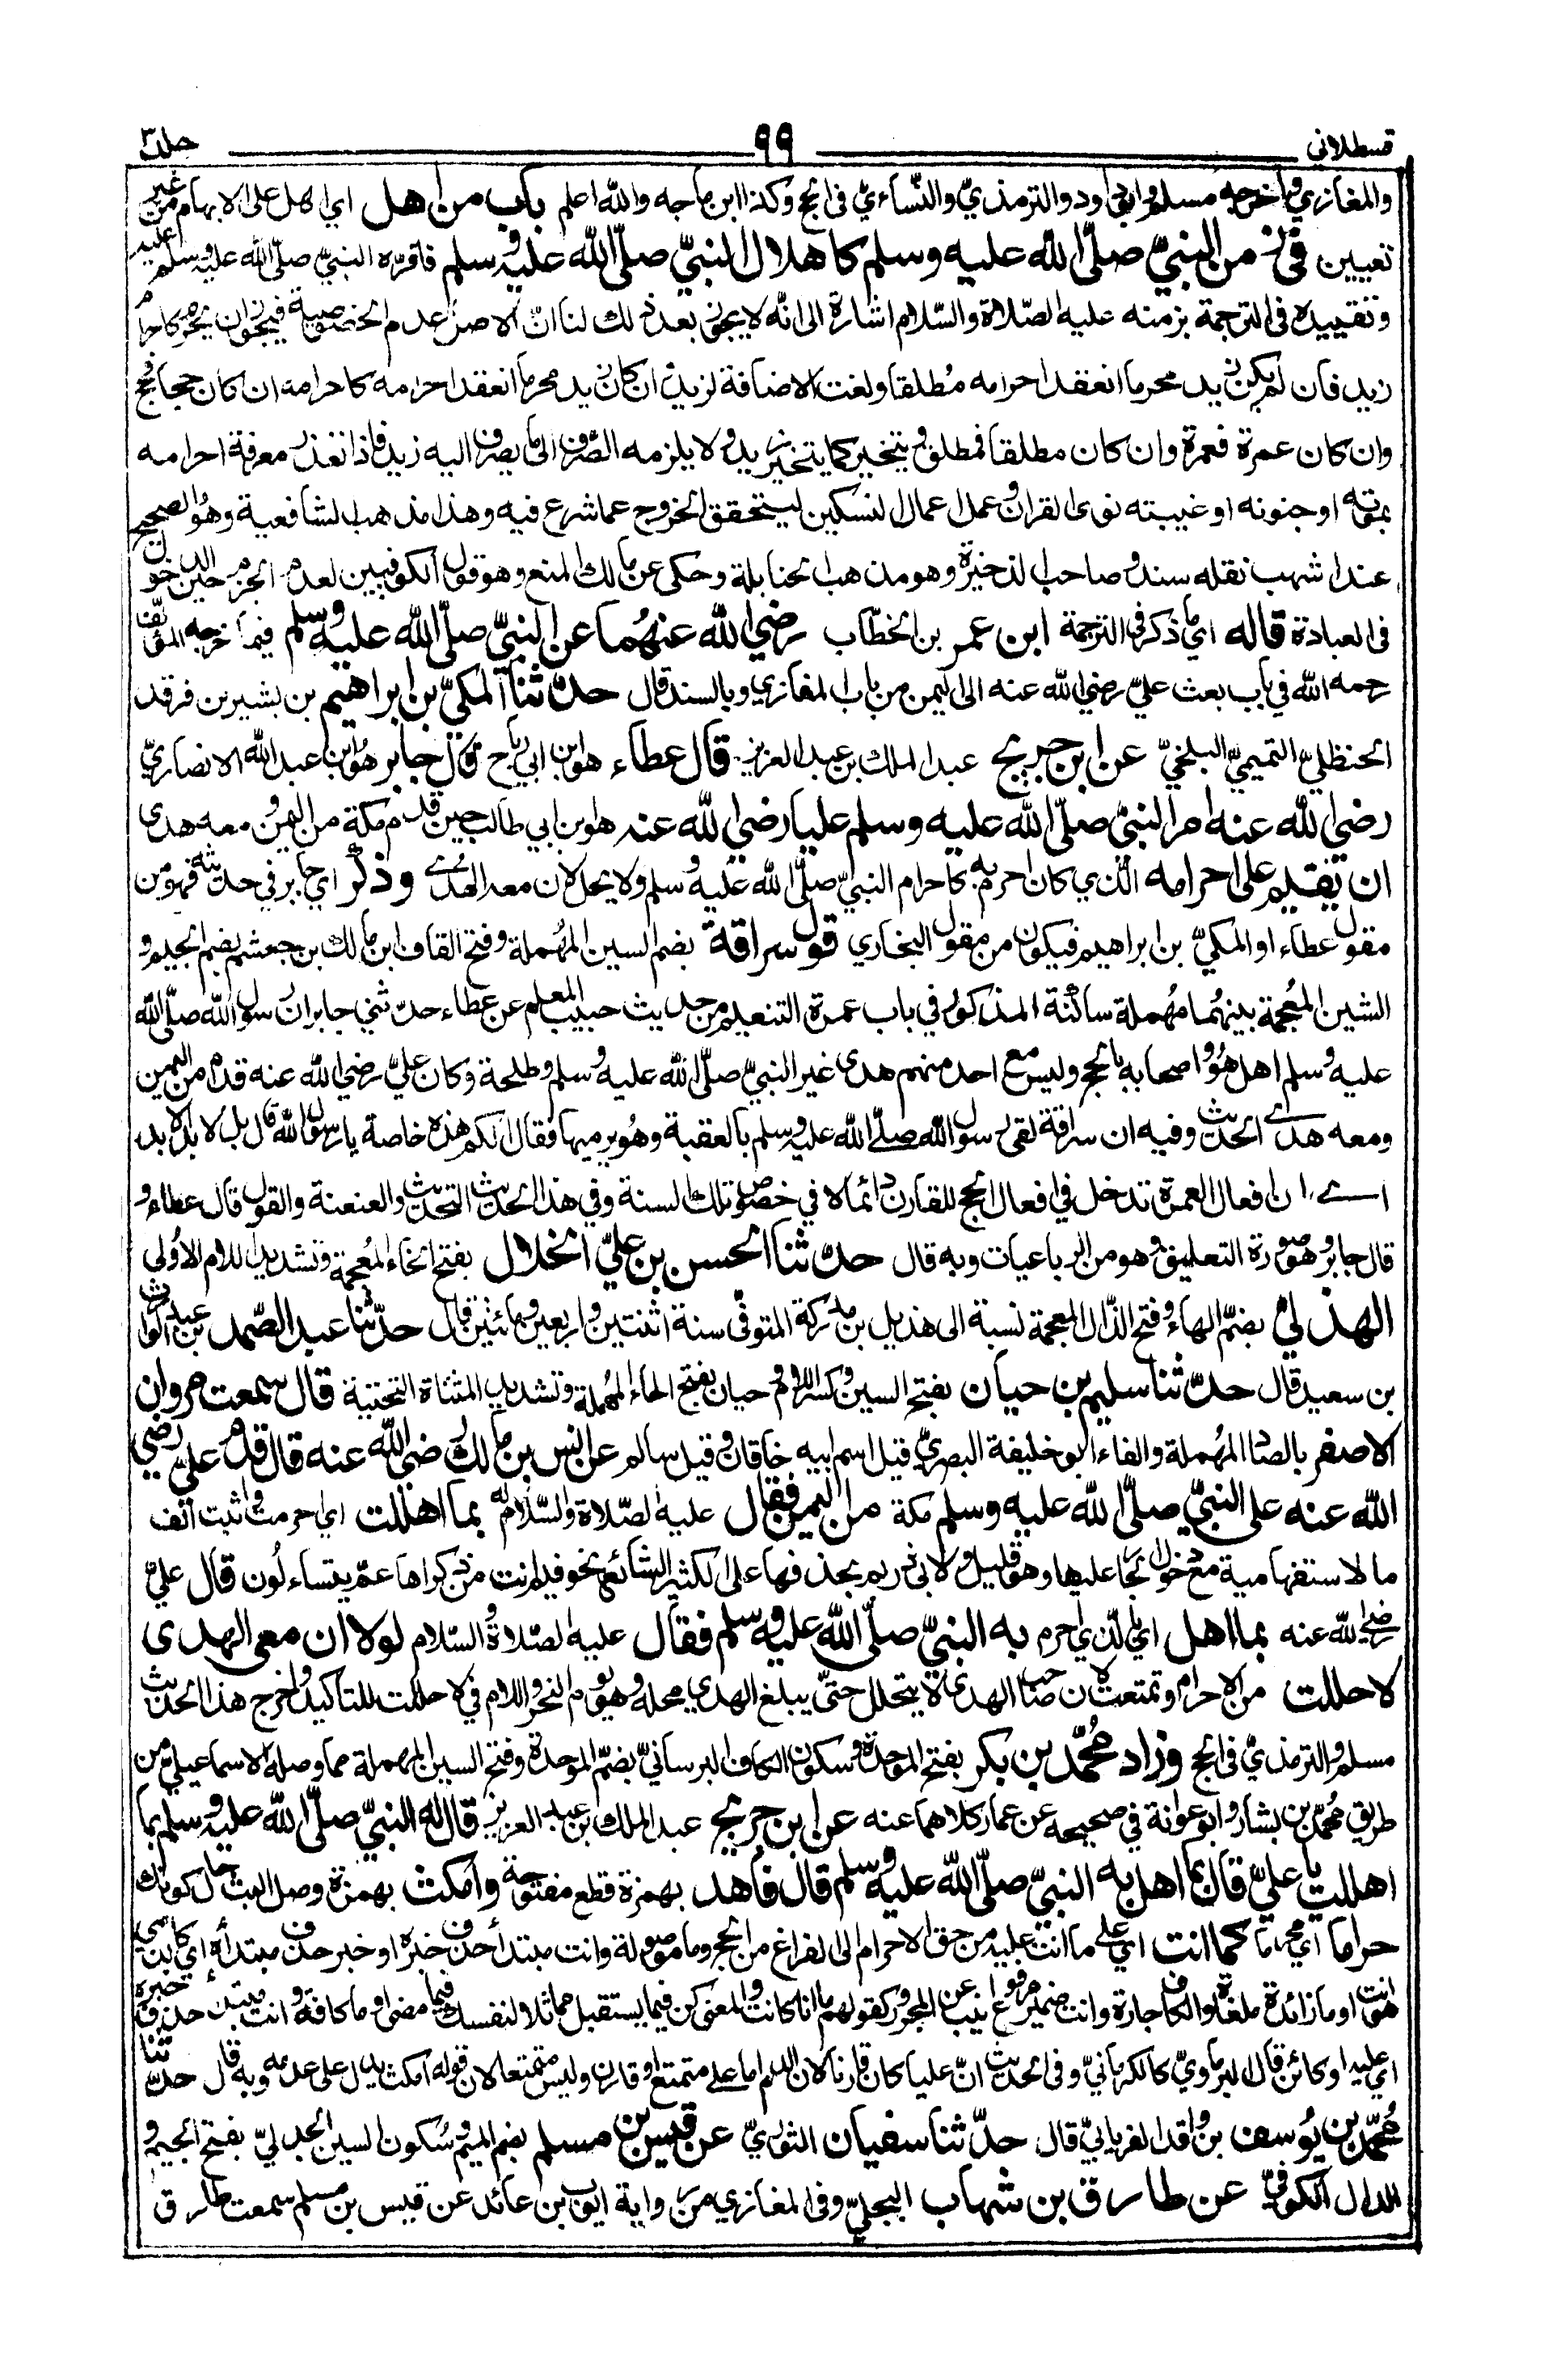 قسطلاني ٩٩ جلد٣
والمغازي واخرجه مسلم وابو داود والترمذيّ والنّساءيّ فى الحج وكذا ابن ماجه والله اعلم باب من اهل اي اهل على الابهام من غير
تعيين فى زمن النبيّ صلّى الله عليه وسلم كاهلال النبيّ صلّى الله عليه وسلم فاقرّه النبيّ صلّى الله عليه وسلم عليه
وتقييده فى الترجمة بزمنه عليه الصّلاة والسّلام اشارة الى انّه لا يجوز بعد ذلك لنا انّ الاصل عدم الخصوصية فيجوز ان يحرم كاحرام
زيد فان لم يكن زيد محرما انعقد احرامه مُطلقا ولغت الاضافة لزيد وان كان زيد محرما انعقد احرامه كاحرامه ان كان حجا فحج
وان كان عمرة فعمرة وان كان مطلقا فمطلق ويتخير كما يتخير زيد ولا يلزمه الصّرف الى ما يصرف اليه زيد فاذا تعذر معرفة احرامه
بموته او جنونه او غيبته نوى القران وعمل اعمال النسكين ليتحقق الخروج عما شرع فيه وهذا مذهب الشافعية وهو الصحيح
عند اشهب نقله سند وصاحب الذخيرة وهو مذهب الحنابلة وحكى عن مالك المنع وهو قول الكوفيين لعدم الجزم حين الدخول
فى العبادة قاله اي ما ذكر فى الترجمة ابن عمر بن الخطّاب رضي الله عنهُما عن النبيّ صلّى الله عليه وسلم فيما اخرجه المؤلّف
رحمه الله في باب بعث عليّ رضي الله عنه الى اليمن من باب المغازي وبالسند قال حدّثنا المكيّ بن ابراهيم بن بشير بن فرقد
الحنظليّ التميميّ البلخيّ عن ابن جريج عبد الملك بن عبد العزيز قال عطاء هو ابن ابي رباح قال جابر هو ابن عبد الله الانصاريّ
رضي الله عنه امر النبيّ صلّى الله عليه وسلم عليا رضي الله عنه هو ابن ابي طالب حين قدم مكة من اليمن ومعه هدى
ان يقيم على احرامه الّذي كان احرم به كاحرام النبيّ صلّى الله عليه وسلم ولا يحل لان معه الهدي وذكر اي جابر في حديثه فهو من
مقول عطاء او المكيّ بن ابراهيم فيكون من مقول البخاري قول سراقة بضم السين المهُملة وفتح القاف ابن مالك بن جعشم بضم الجيم و
الشين المُعجمة بينهُما مهُملة ساكنة المذكور في باب عمرة التنعيم من حديث حبيب المعلم عن عطاء حدّثني جابر ان رسول الله صلّى الله
عليه وسلم اهل هُو واصحابه بالحج وليس مع احد منهم هدى غير النبيّ صلّى الله عليه وسلم وطلحة وكان عليّ رضي الله عنه قدم من اليمن
ومعه هدي الحديث وفيه ان سراقة لقى رسول الله صلّى الله عليه وسلم بالعقبة وهُو يرميها فقال الكم هذه خاصة يا رسول الله قال بل لابد الابد
اي ان افعال العمرة تدخل في افعال الحج للقارن دائما لا في خصوص تلك السنة وفي هذا الحديث التحديث والعنعنة والقول قال عطاء و
قال جابر وهو صورة التعليق وهو من الرباعيات وبه قال حدّثنا الحسن بن عليّ الخلال بفتح الخاء المُعجمة وتشديد اللام الاُولى
الهذلي بضمّ الهاء وفتح الذّال المعجمة نسبة الى هذيل بن مدركة المتوفّى سنة اثنتين واربعين ومائتين قال حدّثنا عبد الصّمد بن عبد الوارث
بن سعيد قال حدّثنا سليم بن حيان بفتح السين وكسر اللام وحيان بفتح الحاء المهُملة وتشديد المثناة التحتية قال سمعت مروان
الاصفر بالصاد المهُملة والفاء ابو خليفة البصريّ قيل اسم ابيه خاقان وقيل سالم عن انس بن مالك رضي الله عنه قال قدم عليّ رضي
الله عنه على النبيّ صلّى الله عليه وسلم مكة من اليمن فقال عليه الصّلاة والسّلام له بما اهللت اي احرمت واثبت الف
ما الاستفهامية مع دخول الجار عليها وهو قليل ولابي ذر بم بحذفها على الكثير الشائع نحو فيم انت من ذكراها عمّ يتساءلُون قال عليّ
رضي الله عنه بما اهل اي بالذي احرم به النبيّ صلّى الله عليه وسلم فقال عليه الصّلاة والسّلام لولا ان معى الهدى
لاحللت من الاحرام وتمتعت لان صاحب الهدى لا يتحلل حتّى يبلغ الهدي محله وهو يوم النحر واللام في لاحللت للتاكيد واخرج هذا الحديث
مسلم والترمذيّ فى الحج وزاد محُمّد بن بكر بفتح الموحدة وسكون الكاف البرسانيّ بضمّ الموحدة وفتح السين المهملة مما وصله الاسماعيلي من
طريق محُمّد بن بشار وابو عوانة في صحيحه عن عمار كلاهما عنه عن ابن جريج عبد الملك بن عبد العزيز قال له النبيّ صلّى الله عليه وسلم بما
اهللت يا عليّ قال بما اهل به النبيّ صلّى الله عليه وسلم قال فأهد بهمزة قطع مفتوحة وامكث بهمزة وصل البث حال كونك
حراما اي محرما كما انت اي على ما انت عليه من حق الاحرام الى الفراغ من الحج وما موصولة وانت مبتدأ حذف خبره او خبر حذف مبتدأه اي كالذي
هو انت او ما زائدة ملغاة والكاف جارة وانت ضمير مرفوع انيب عن المجرور كقولهم ما انا كانت والمعنى كن فيما يستقبل مماثلا لنفسك فيما مضى او ما كافة وانت مبتدأ حذف خبره
اي عليه او كائن قال البرماويّ كالكرمانيّ وفى الحديث انّ عليا كان قارنا لان الدم اما على متمتع او قارن وليس متمتعا لان قوله امكث يدل على عدمه وبه قال حدّثنا
محُمّد بن يُوسف بن واقد الفريابيّ قال حدّثنا سفيان الثوريّ عن قيس بن مسلم بضم الميم وسُكون السين الجدليّ بفتح الجيم و
الدال الكوفيّ عن طارق بن شهاب البجليّ وفى المغازي من رواية ايوب بن عائد عن قيس بن مسلم سمعت طارق